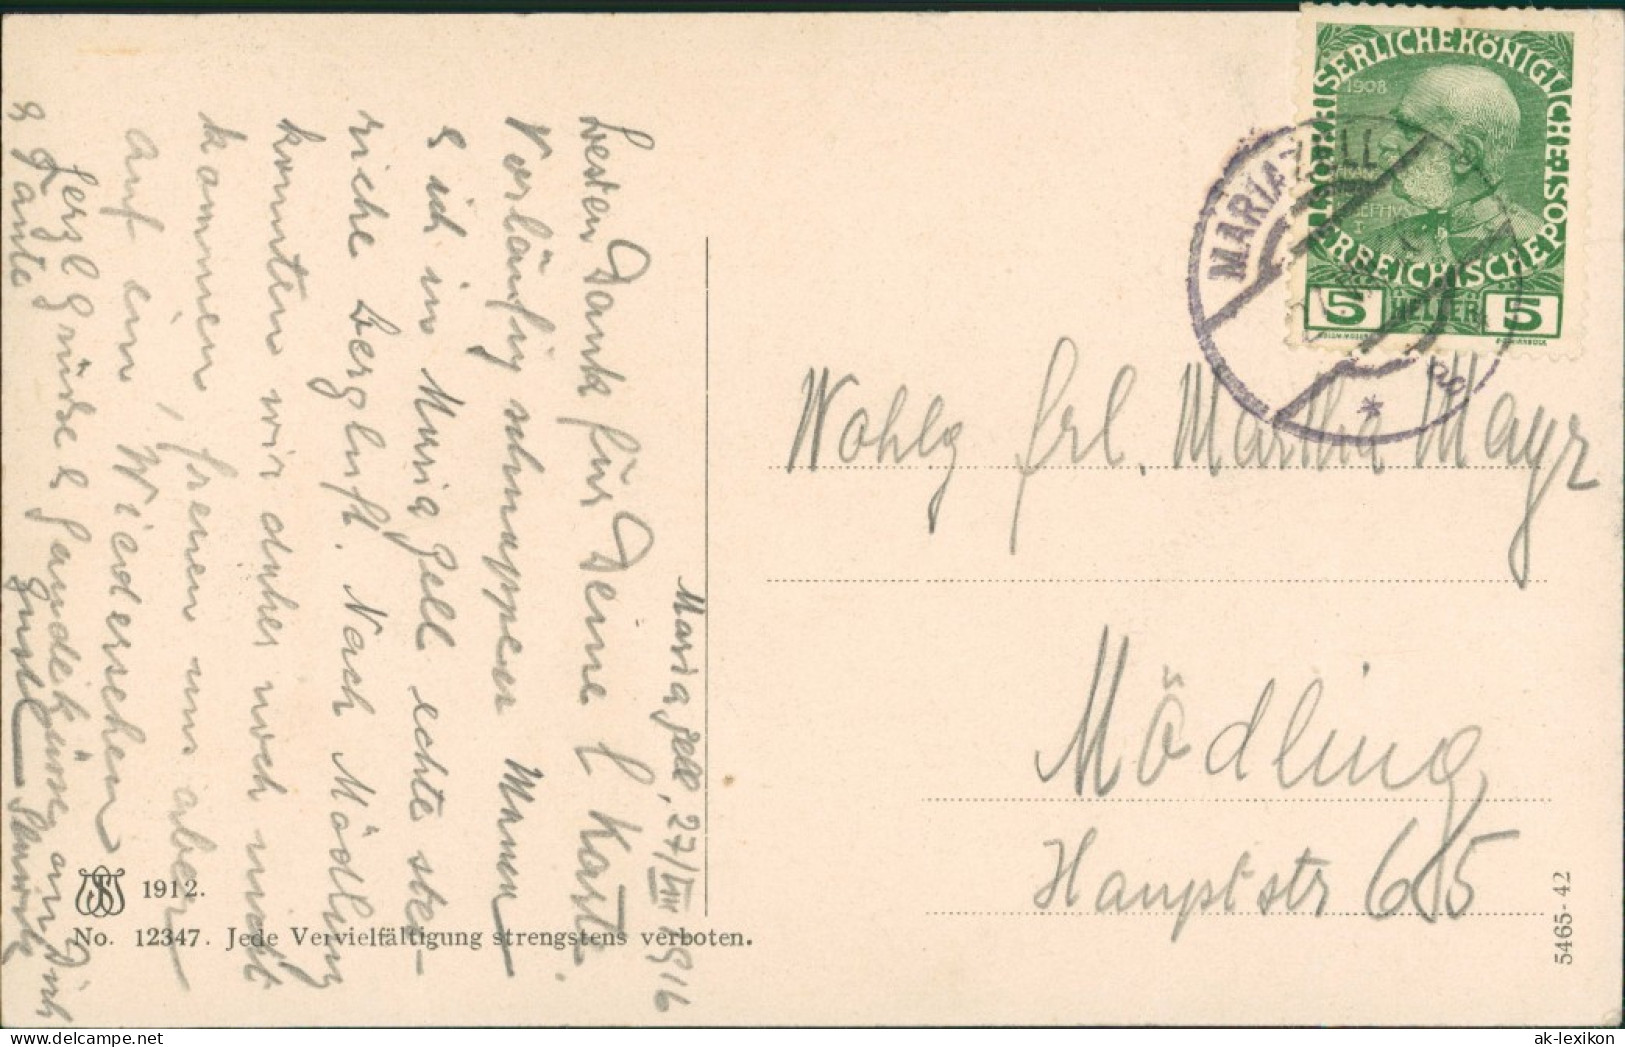 Mariazell, 27/VIII 1916
Besten Dank für Deine l. Karte.
Vorläufig schnappen Mama
& ich in Mariazell echte stei-
rische Bergluft. Nach Mödling
konnten wir daher noch nicht
kommen, freuen uns aber
auf ein Wiedersehen
Herzl Grüße & Handküsse an Dich
& Tante
Gustl
KAISERLICHE KÖNIGLICHE ÖSTERREICHISCHE POST
1908
5 HELLER 5
MARIAZELL
*
Wohlg Frl. Martha Mayr
Mödling,
Hauptstr 65
1912.
No. 12347. Jede Vervielfältigung strengstens verboten.
5465-42
ak-lexikon